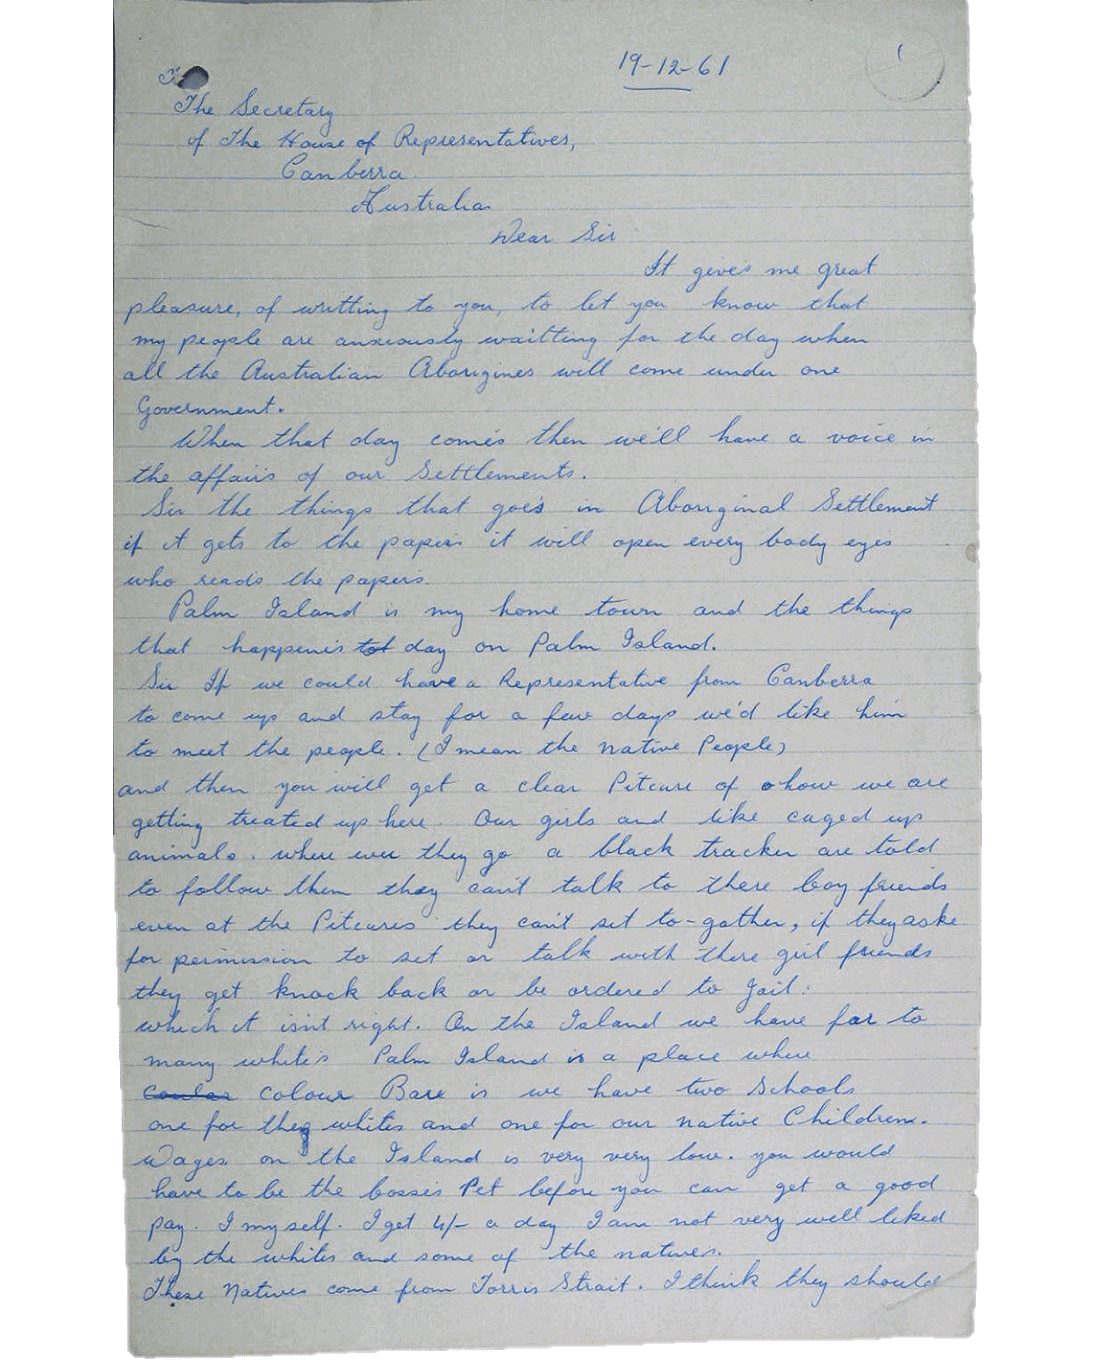 19-12-61
1
To
The Secretary
of The House of Representatives,
Canberra
Australia
Dear Sir
It give's me great
pleasure, of writting to you, to let you know that
my people are anxeously waitting for the day when
all the Australian Aborigines will come under one
Government.
When that day come's then we'll have a voice in
the affair's of our Settlements.
Sir the things that goe's in Aboriginal Settlement
if it gets to the paper's it will open every body eyes
who read's the paper's.
Palm Island is my home town and the things
that happen's to day on Palm Island.
Sir If we could have a Representative from Canberra
to come up and stay for a few days we'd like him
to meet the people. (I mean the native People)
and then you will get a clear Pitcure of how we are
getting treated up here. Our girls and like caged up
animals. where ever they go a black tracker are told
to follow them they can't talk to there boy friends
even at the Pitcures they can't set to-gather, if they aske
for permission to set or talk with there girl friends
they get knock back or be ordered to Jail.
which it isn't right. On the Island we have far to
many white's Palm Island is a place where
colour Bare is we have two Schools
one for the whites and one for our native Children.
Wages on the Island is very very low. you would
have to be the bosse's Pet before you can get a good
pay. I my self. I get 4/- a day I am not very well liked
by the whites and some of the natives.
These Natives come from Torris Strait. I think they should